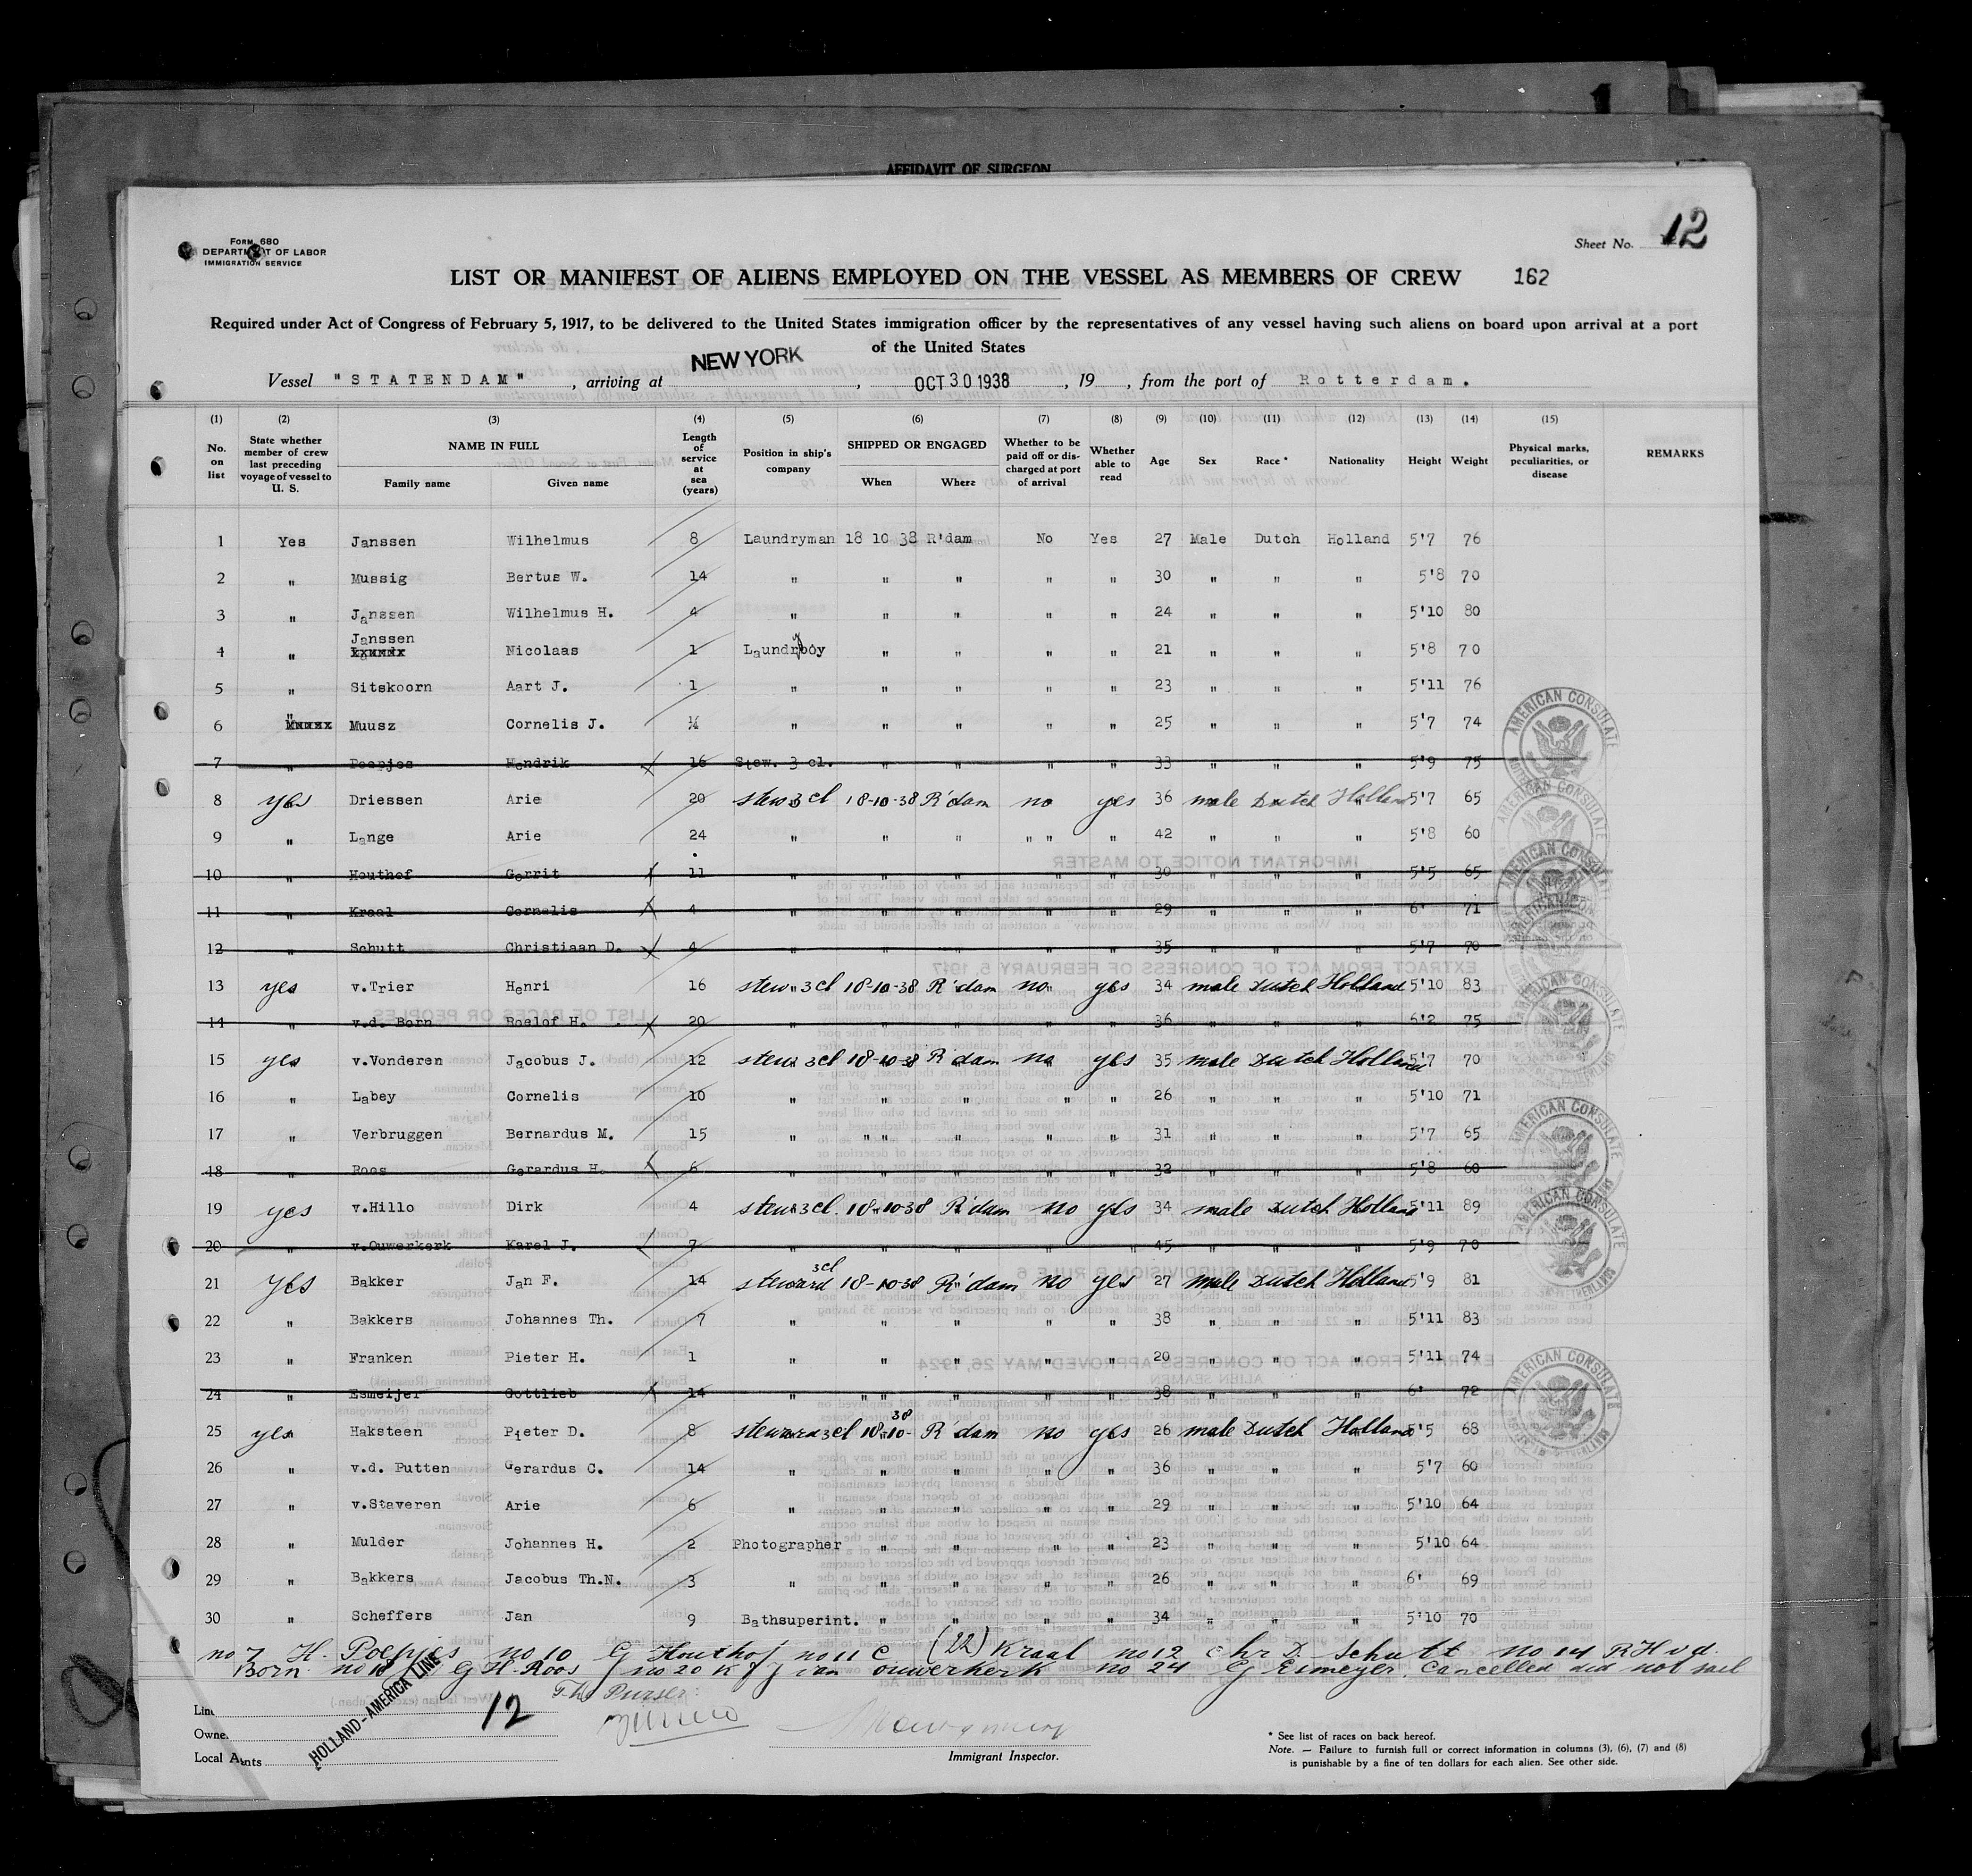 AFFIDAVIT OF SURGEON
Form 680
DEPARTMENT OF LABOR
IMMIGRATION SERVICE
Sheet No. 12
LIST OR MANIFEST OF ALIENS EMPLOYED ON THE VESSEL AS MEMBERS OF CREW 162
Required under Act of Congress of February 5, 1917, to be delivered to the United States immigration officer by the representatives of any vessel having such aliens on board upon arrival at a port
of the United States
Vessel "STATENDAM", arriving at NEW YORK, OCT 30 1938, 19 , from the port of Rotterdam.
(1) (2) (3) (4) (5) (6) (7) (8) (9) (10) (11) (12) (13) (14) (15)
No. on list State whether member of crew last preceding voyage of vessel to U. S. NAME IN FULL Family name Given name Length of service at sea (years) Position in ship's company SHIPPED OR ENGAGED When Where Whether to be paid off or discharged at port of arrival Whether able to read Age Sex Race * Nationality Height Weight Physical marks, peculiarities, or disease REMARKS
1 Yes Janssen Wilhelmus 8 Laundryman 18 10 38 R'dam No Yes 27 Male Dutch Holland 5'7 76
2 " Mussig Bertus W. 14 " " " " " 30 " " " 5'8 70
3 " Janssen Wilhelmus H. 4 " " " " " 24 " " " 5'10 80
4 " Janssen Nicolaas 1 Laundryboy " " " " 21 " " " 5'8 70
5 " Sitskoorn Aart J. 1 " " " " " 23 " " " 5'11 76
6 " Muusz Cornelis J. ¼ " " " " " 25 " " " 5'7 74
7 " Poepjes Hendrik 16 Stew. 3 cl. " " " " 33 " " " 5'9 75
8 yes Driessen Arie 20 stew 3 cl 18-10-38 R'dam no yes 36 male Dutch Holland 5'7 65
9 " Lange Arie 24 " " " " " " 42 " " " 5'8 60
10 " Houthof Gerrit 11 " " " " " 30 " " " 5'5 65
11 " Kraal Cornelis 4 " " " " " 29 " " " 6' 71
12 " Schutt Christiaan D. 4 " " " " " 35 " " " 5'7 70
13 yes v.Trier Henri 16 stew 3 cl 18-10-38 R'dam no yes 34 male Dutch Holland 5'10 83
14 " v.d. Born Roelof H. 20 " " " " " 36 " " " 6'2 75
15 yes v.Vonderen Jacobus J. 12 stew 3 cl 18-10-38 R'dam no yes 35 male Dutch Holland 5'7 70
16 " Labey Cornelis 10 " " " " " 26 " " " 5'10 71
17 " Verbruggen Bernardus M. 15 " " " " " " 31 " " " 5'7 65
18 " Roos Gerardus H. 6 " " " " " 32 " " " 5'8 60
19 yes v.Hillo Dirk 4 stew 3 cl. 18-10-38 R'dam no yes 34 male Dutch Holland 5'11 89
20 " v.Ouwerkerk Karel J. 7 " " " " " 45 " " " 5'9 70
21 yes Bakker Jan F. 14 steward 3 cl 18-10-38 R'dam no yes 27 male Dutch Holland 5'9 81
22 " Bakkers Johannes Th. 7 " " " " " 38 " " " 5'11 83
23 " Franken Pieter H. 1 " " " " " 20 " " " 5'11 74
24 " Esmeijer Gottlieb 14 " " " " " " 38 " " " 6' 72
25 yes Haksteen Pieter D. 8 steward 3 cl 18-10-38 R'dam no yes 26 male Dutch Holland 5'5 68
26 " v.d. Putten Gerardus C. 14 " " " " " 36 " " " 5'7 60
27 " v.Staveren Arie 6 " " " " " 29 " " " 5'10 64
28 " Mulder Johannes H. 2 Photographer " " " " 23 " " " 5'10 64
29 " Bakkers Jacobus Th.N. 3 " " " " " 26 " " " 6' 69
30 " Scheffers Jan 9 Bathsuperint. " " " " 34 " " " 5'10 70
no 7 H. Poepjes no 10 G Houthof no 11 C (22) Kraal no 12 Chr D. Schutt no 14 R H v d.
Born no 18 G H. Roos no 20 K J van ouwerkerk no 24 G Esmeyer. Cancelled did not sail
The Purser:
Line
Owner
Local Agents
HOLLAND-AMERICA LINE
12
Immigrant Inspector.
* See list of races on back hereof.
Note. — Failure to furnish full or correct information in columns (3), (6), (7) and (8)
is punishable by a fine of ten dollars for each alien. See other side.
AMERICAN CONSULATE
AMERICAN CONSULATE
AMERICAN CONSULATE
AMERICAN CONSULATE
AMERICAN CONSULATE
AMERICAN CONSULATE